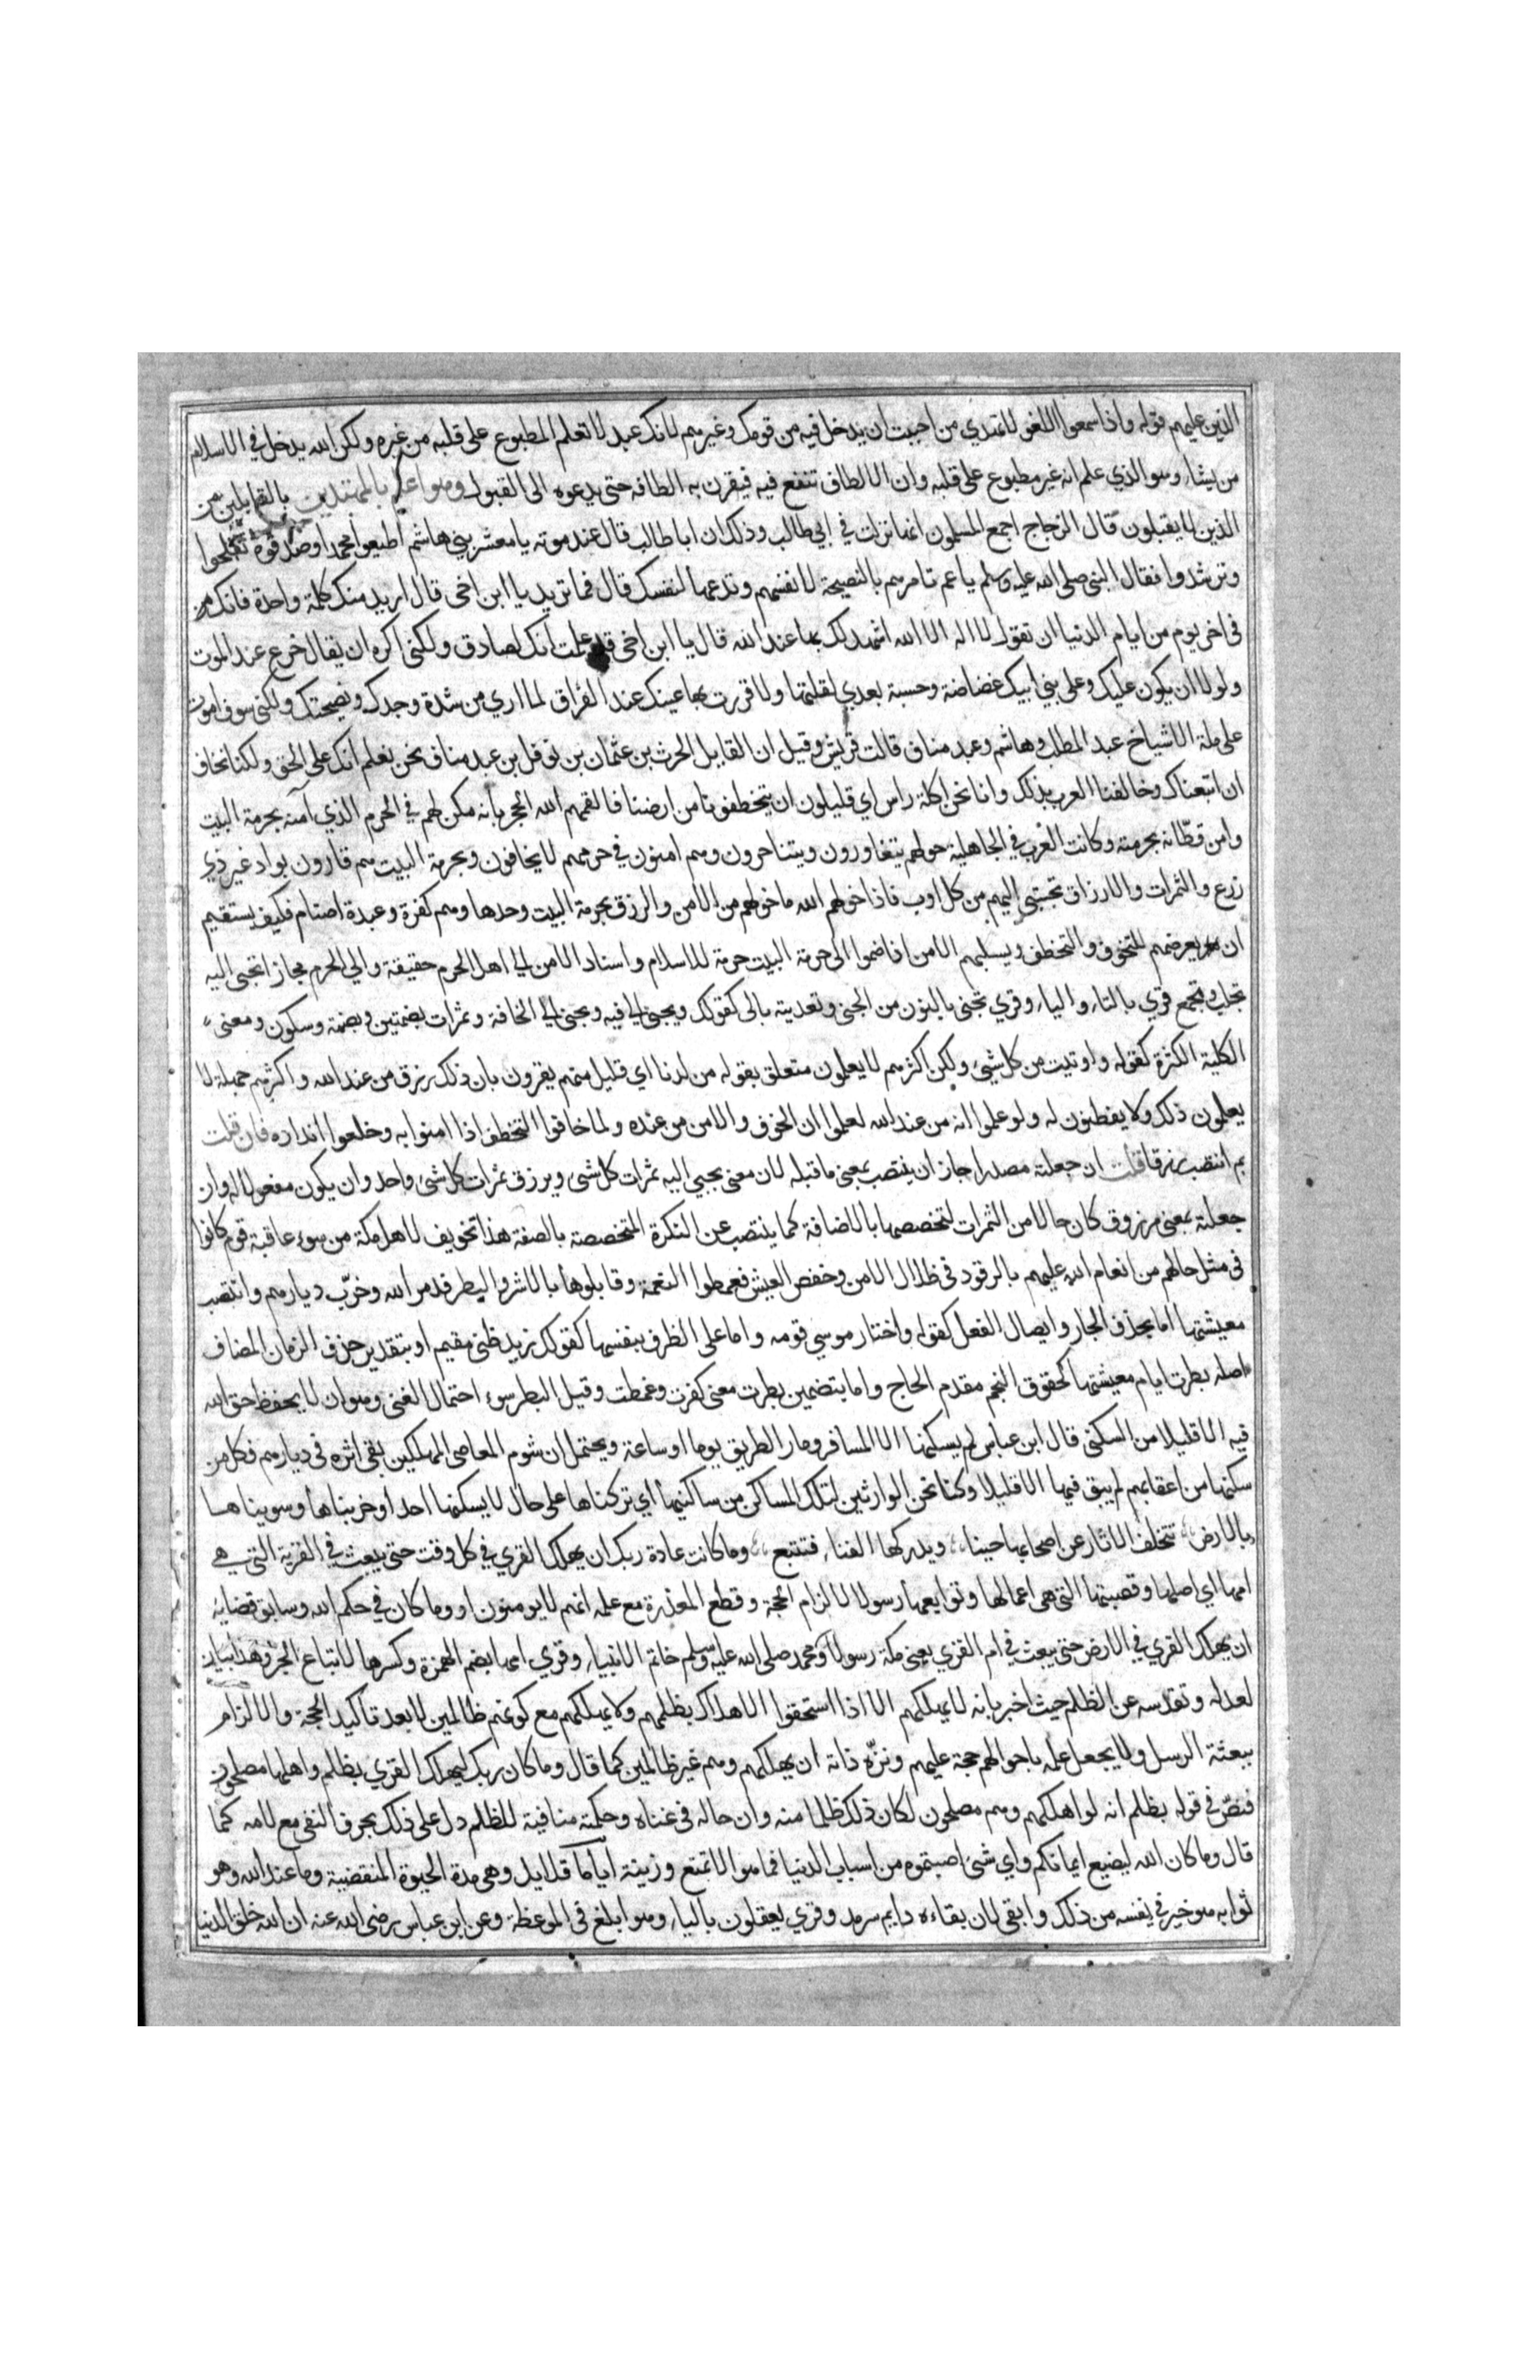 الذين عليهم قوله واذا سمعوا اللغو لا تهدي من احببت ان يدخل فيه من قومك وغيرهم لانك عبد لا تعلم المطبوع على قلبه من غيره ولكن الله يدخل في الاسلام
من يشاء وهو الذي علم انه غير مطبوع على قلبه وان الالطاف تنفع فيه فيقرن به الطافه حتى يدعوه الى القبول وهو اعلم بالمهتدين بالقابلين من
الذين لا يقبلون قال الزجاج اجمع المسلمون انها نزلت في ابي طالب وذلك ان ابا طالب قال عند موته يا معشر بني هاشم اطيعوا محمدا وصدقوه تفلحوا
وترشدوا فقال النبي صلى الله عليه وسلم يا عم تامرهم بالنصيحة لانفسهم وتدعها لنفسك قال فما تريد يا ابن اخي قال اريد منك كلمة واحدة فانك
في اخر يوم من ايام الدنيا ان تقول لا اله الا الله اشهد لك بها عند الله قال يا ابن اخي قد علمت انك لصادق ولكني اكره ان يقال خرع عند الموت
ولولا ان يكون عليك وعلى بني ابيك غضاضة وحسبة بعدي لقلتها ولاقررت بها عينك عند الفراق لما اري من شدة وجدك ونصيحتك ولكني سوف اموت
على ملة الاشياخ عبد المطلب وهاشم وعبد مناف قالت قريش وقيل ان القايل الحرث بن عثمان بن نوفل بن عبد مناف نحن نعلم انك على الحق ولكنا نخاف
ان اتبعناك وخالفنا العرب بذلك وانا نحن اكلة راس اي قليلون ان يتخطفونا من ارضنا فالقمهم الله الحجر بانه مكن لهم في الحرم الذي آمنه بحرمة البيت
وامن قطّانه بحرمته وكانت العرب في الجاهلية حولهم يتغاورون ويتناحرون وهم امنون في حرمهم لا يخافون وبحرمة البيت هم قارون بواد غير ذي
زرع والثمرات والارزاق تجبى اليهم من كل اوب فاذا خولهم الله ما خولهم من الامن والرزق بحرمة البيت وحدها وهم كفرة وعبدة اصنام فكيف يستقيم
ان يعرضهم للتخوف والتخطف ويسلبهم الامن اذا ضموا الى حرمة البيت حرمة الاسلام واسناد الامن الى اهل الحرم حقيقة والى الحرم مجاز تجبى اليه
تجلب وتجمع قري بالتاء والياء وقري تجنى بالنون من الجني وتعديته بالى كقولك ويجنى الي فيه ويجنى الى الخافة وثمرات بضمتين وبضمة وسكون ومعنى
الكلية الكثرة كقوله واوتيت من كل شيئ ولكن اكثرهم لا يعلمون متعلق بقوله من لدنا اي قليل منهم يقرون بان ذلك رزق من عند الله واكثرهم جهلة لا
يعلمون ذلك ولا يفطنون له ولو علموا انه من عند الله لعلموا ان الخوف والامن من عنده ولما خافوا التخطف اذا امنوا به وخلعوا انداده فان قلت
بم انتصب رزقا قلت ان جعلته مصدرا جاز ان ينتصب بمعنى ما قبله لان معنى يجبي اليه ثمرات كل شئ ويرزق ثمرات كل شئ واحد وان يكون مفعولا له وان
جعلته بمعنى مرزوق كان حالا من الثمرات لتخصصها بالاضافة كما ينتصب عن النكرة المتخصصة بالصفة هذا تخويف لاهل مكة من سوء عاقبة قوم كانوا
في مثل حالهم من انعام الله عليهم بالرقود في ظلال الامن وخفض العيش فغمطوا النعمة وقابلوها بالاشر والبطر فدمر الله وخرّب ديارهم وانتصب
معيشتها اما بحذف الجار وايصال الفعل كقوله واختار موسي قومه واما على الظرف بنفسها كقولك زيد ظني مقيم او بتقدير حذف الزمان المضاف
اصله بطرت ايام معيشتها كخفوق النجم مقدم الحاج واما بتضمين بطرت معنى كفرت وغمطت وقيل البطر سوء احتمال الغنى وهو ان لا يحفظ حق الله
فيه الا قليلا من السكنى قال ابن عباس لم يسكنها الا المسافر ومار الطريق يوما او ساعة ويحتمل ان شوم المعاصي المهلكين بقي اثره في ديارهم فكل من
سكنها من اعقابهم لم يبق فيها الا قليلا وكنا نحن الوارثين لتلك المساكن من ساكنيها اي تركناها على حال لا يسكنها احد او خربناها وسويناها
بالارض تتخلف الاثار عن اصحابها حينا ويدركها الفناء فتتبع وما كانت عادة ربك ان يهلك القري في كل وقت حتى يبعث في القرية التي هي
امها اي اصلها وقصبتها التي هي اعمالها وتوابعها رسولا لالزام الحجة وقطع المعذرة مع علمه انهم لا يومنون او وما كان في حكم الله وسابق قضايه
ان يهلك القري في الارض حتى يبعث في ام القري يعني مكة رسولا وهو محمد صلى الله عليه وسلم خاتم الانبياء وقري امها بضم الهمزة وكسرها لاتباع الجر وهذا بيان
لعدله وتقدسه عن الظلم حيث اخبر بانه لا يهلكهم الا اذا استحقوا الاهلاك بظلمهم ولا يهلكهم مع كونهم ظالمين الا بعد تاكيد الحجة والالزام
ببعثة الرسل ولا يجعل علمه باحوالهم حجة عليهم ونزّه ذاته ان يهلكهم وهم غير ظالمين كما قال وما كان ربك ليهلك القري بظلم واهلها مصلحون
فنصّ في قوله بظلم انه لو اهلكهم وهم مصلحون لكان ذلك ظلما منه وان حاله في غناه وحكمته منافية للظلم دل على ذلك بحرف النفي مع لامه كما
قال وما كان الله ليضيع ايمانكم واي شئ اصبتموه من اسباب الدنيا فما هو الا تمتع وزينة اياما قلايل وهي مدة الحيوة المنقضية وما عند الله وهو
ثوابه هو خير في نفسه من ذلك وابقى لان بقاءه دايم سرمد وقري يعقلون بالياء وهو ابلغ في الموعظة وعن ابن عباس رضي الله عنه ان الله خلق الدنيا